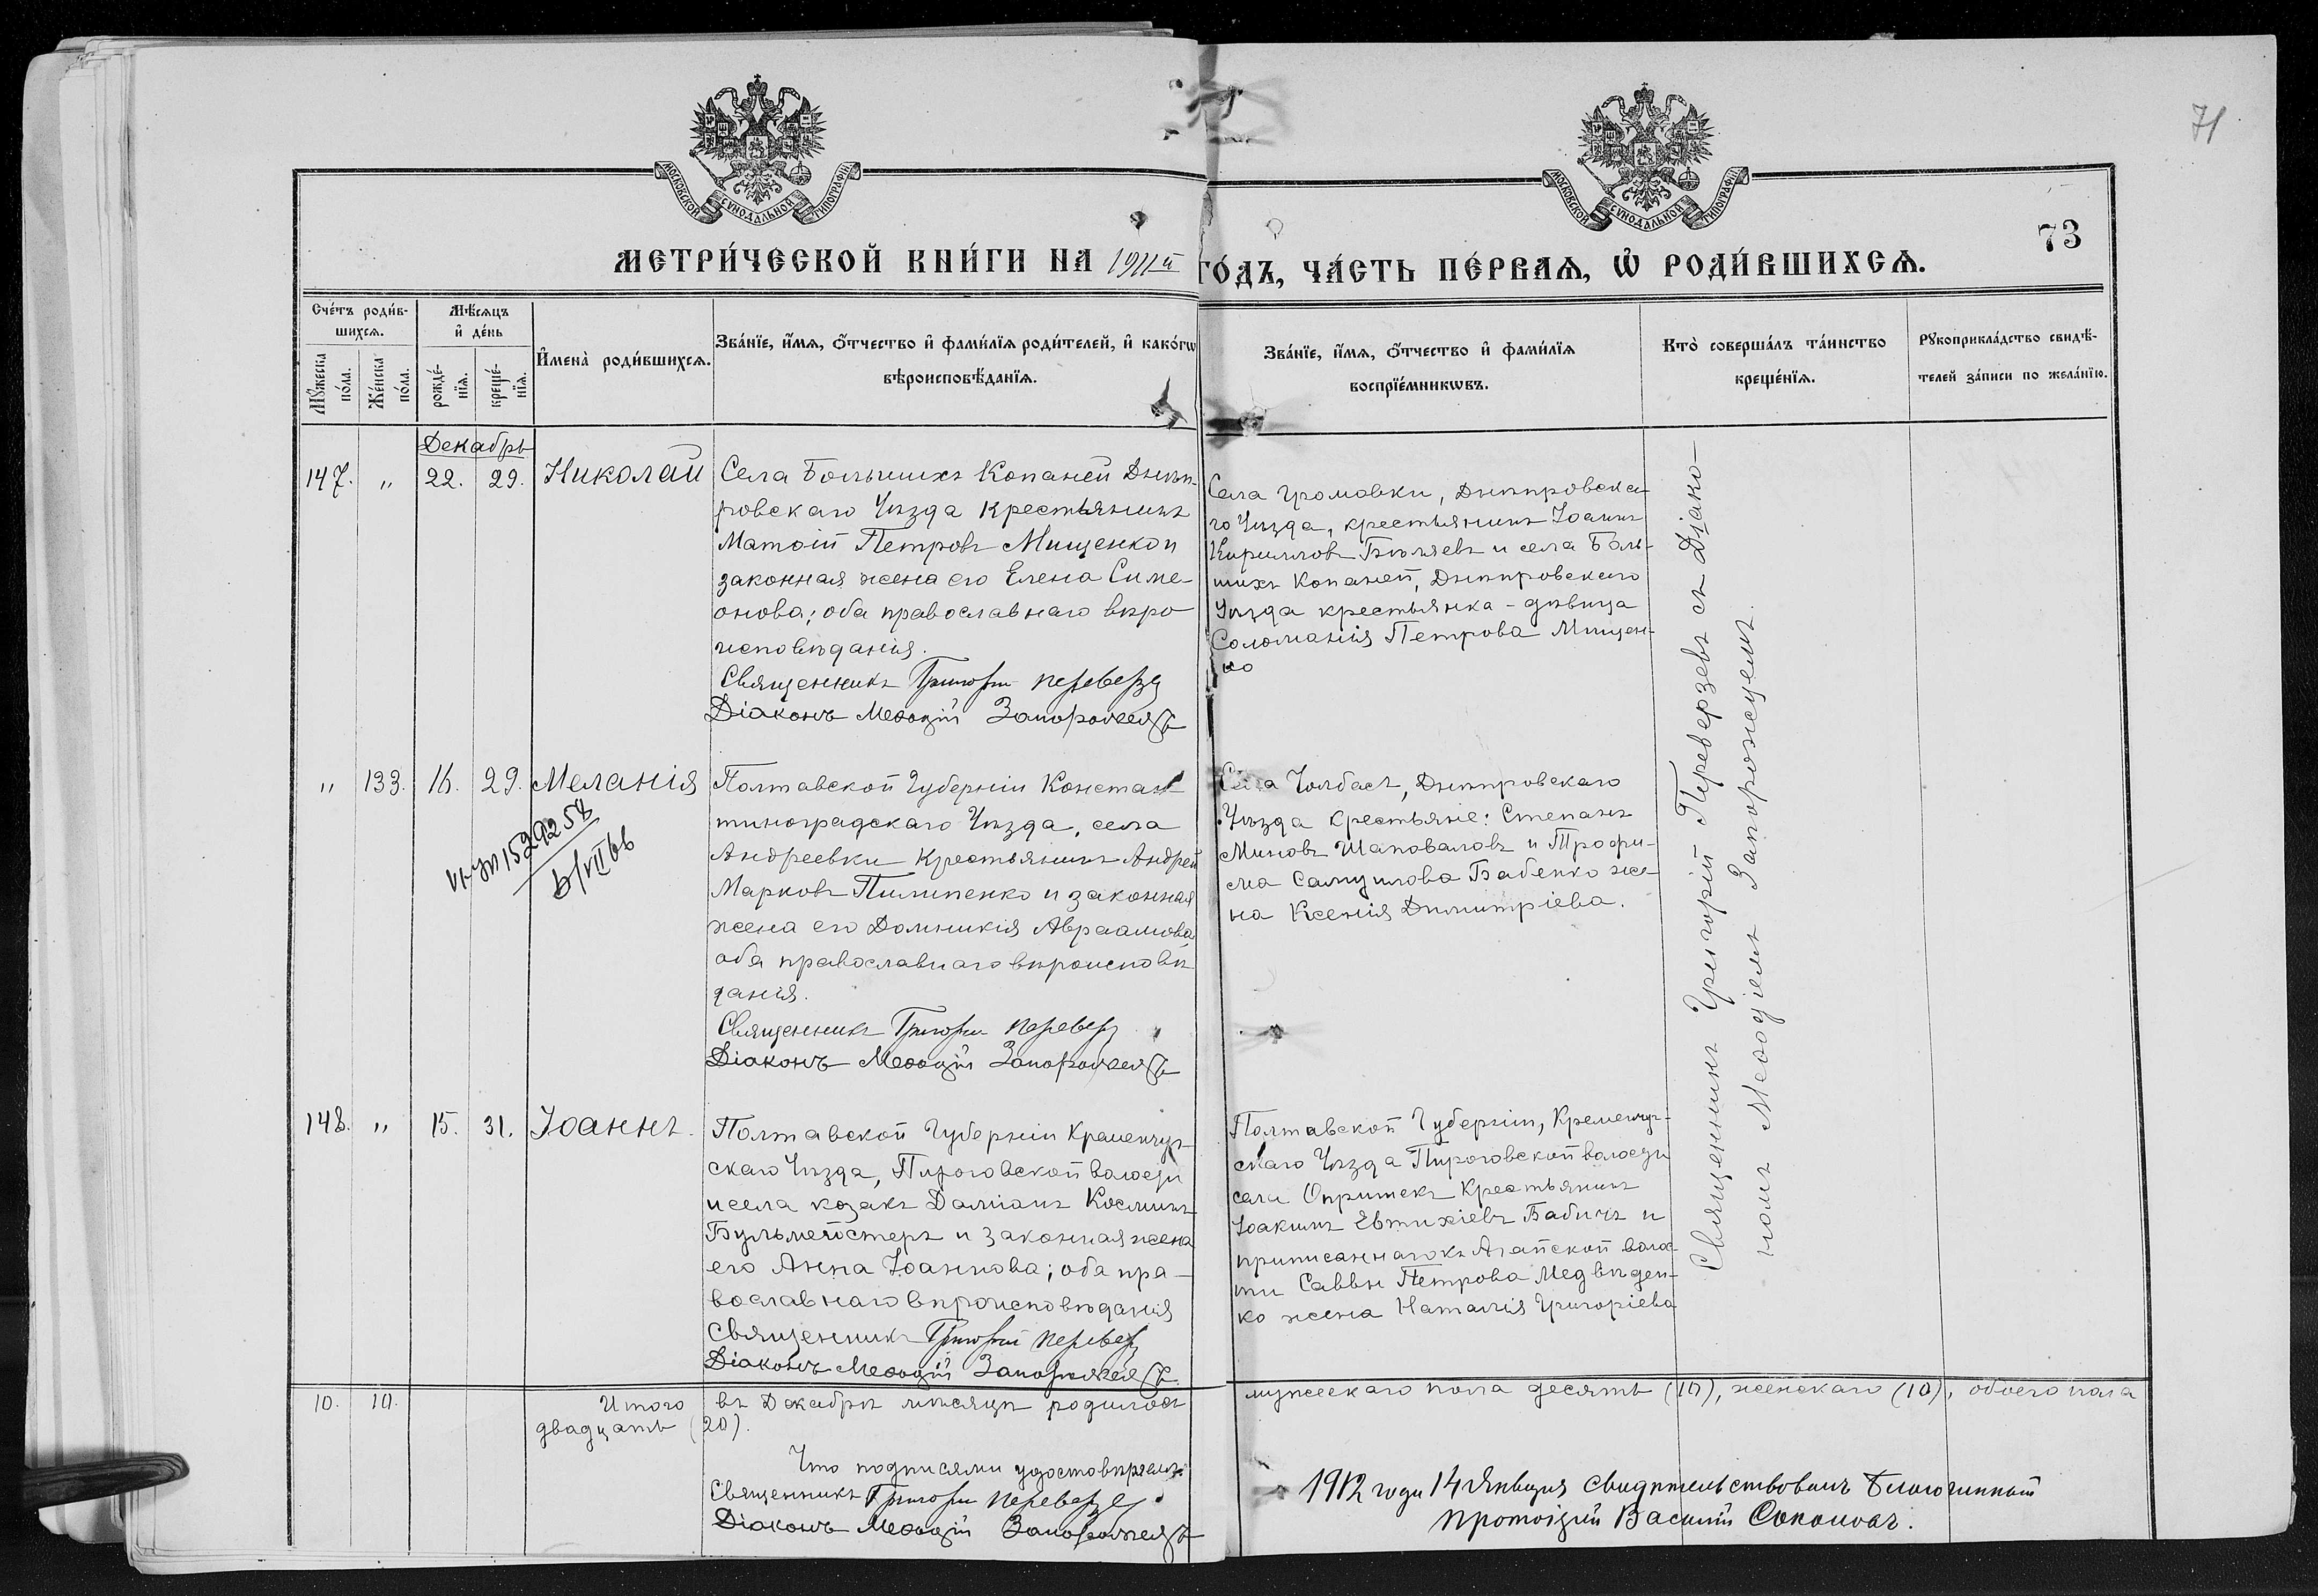 МОСКОВСКОЙ СѴНОДАЛЬНОЙ ТИПОГРАФІИ
МОСКОВСКОЙ СѴНОДАЛЬНОЙ ТИПОГРАФІИ
71
73
МЕТРИ́ЧЕСКОЙ КНИ́ГИ НА 1911й ГО́ДЪ, ЧА́СТЬ ПЕ́РВАѦ, Ѿ РОДИ́ВШИХСѦ.
Сче́тъ роди́в-
шихсѧ.
Мꙋ́жеска по́ла.
Же́нска по́ла.
Мѣ́сѧцъ
и҆ де́нь
рожде́-
нїѧ.
креще́-
нїѧ.
И҆мена̀ роди́вшихсѧ.
Зва́нїе, и҆́мѧ, ѻ҆́тчество и҆ фами́лїѧ роди́телей, и҆ како́гѡ
вѣроисповѣ́данїѧ.
Зва́нїе, и҆́мѧ, ѻ҆́тчество и҆ фами́лїѧ
воспрїе́мникѡвъ.
Кто̀ соверша́лъ та́инство
креще́нїѧ.
Рꙋкоприкла́дство свидѣ́-
телей за́писи по жела́нїю.
Декабрь
147. „ 22. 29. Николай
Села Большихъ Копаней Днѣп-
ровскаго Уѣзда крестьянинъ
Матѳій Петровъ Мищенко и
законная жена его Елена Симе-
онова; оба православнаго вѣро
исповѣданія.
Священникъ Григорій Переверзе
Діаконъ Меѳодій Запорожецъ
Села Громовки, Днѣпровска-
го Уѣзда, крестьянинъ Іоаннъ
Кирилловъ Бѣляевъ и села Боль-
шихъ Копаней, Днѣпровскаго
Уѣзда крестьянка - дѣвица
Соломанія Петрова Мищен-
ко
Священникъ Григорій Переверзевъ съ Діако-
номъ Меѳодіемъ Запорожцемъ.
„ 133. 16. 29. Меланія
Полтавской Губерніи Констан
тиноградскаго Уѣзда, села
Андреевки Крестьянинъ Андрей
Марковъ Пилипенко и законная
жена его Домникія Авраамова,
оба православнаго вѣроисповѣ
данія.
Священникъ Григорій Переверз
Діаконъ Меѳодій Запорожецъ
Села Чолбасъ, Днѣпровскаго
Уѣзда Крестьяне: Степанъ
Миновъ Шаповаловъ и Трофи-
ма Самуилова Бабенко же-
на Ксенія Димитріева.
148. „ 15. 31. Іоаннъ.
Полтавской Губерніи Кременчуг-
скаго Уѣзда, Пироговской волости
и села козакъ Даміанъ Косминъ
Бульмейстеръ и законная жена
его Анна Іоаннова; оба пра-
вославнаго вѣроисповѣданія
Священникъ Григорій Переверз
Діаконъ Меѳодій Запорожецъ
Полтавской Губерніи, Кременчуг-
скаго Уѣзда Пироговской волости
села Опришекъ Крестьянинъ
Іоакимъ Евтихіевъ Бабичъ и
приписаннаго къ Агайской волос-
ти Саввы Петрова Медвѣден-
ко жена Наталія Григоріева
10. 10. Итого въ Декабрѣ мѣсяцѣ родилось мужескаго пола десять (10), женскаго (10), обоего пола
двадцать (20).
Что подписями удостовѣряемъ
Священникъ Григорій Переверзе
Діаконъ Меѳодій Запорожецъ
1912 года 14 Января свидѣтельствовалъ Благочинный
Протоіерей Василій Соколовъ.